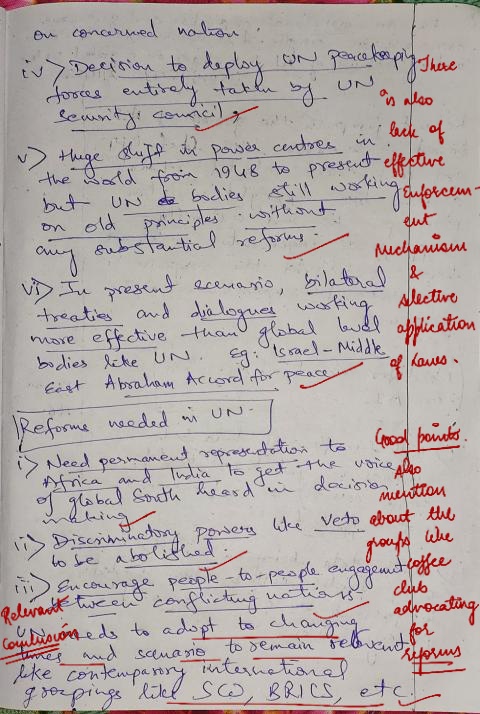 on concerned nation.
iv) Decision to deploy UN peacekeeping
forces entirely taken by UN
security council.
v) Huge shift in power centres in
the world from 1948 to present
but UN bodies still working
on old principles without
any substantial reforms
vi) In present scenario, bilateral
treaties and dialogues working
more effective than global level
bodies like UN. Eg: Israel-Middle
East Abraham Accord for peace.
There
is also
lack of
effective
Enforcem-
ent
Mechanism
&
selective
application
of Laws.
Reforms needed in UN-
i) Need permanent representation to
Africa and India to get the voice
of global South heard in decision
making
ii) Discriminatory powers like veto
to be abolished.
iii) Encourage people-to-people engagement
between conflicting nations.
Good points.
Also
mention
about the
groups like
coffee
club
advocating
for
reforms
Relevant
Conclusion
UN needs to adopt to changing
times and scenario to remain relevant
like contemporary international
groupings like SCO, BRICS, etc.